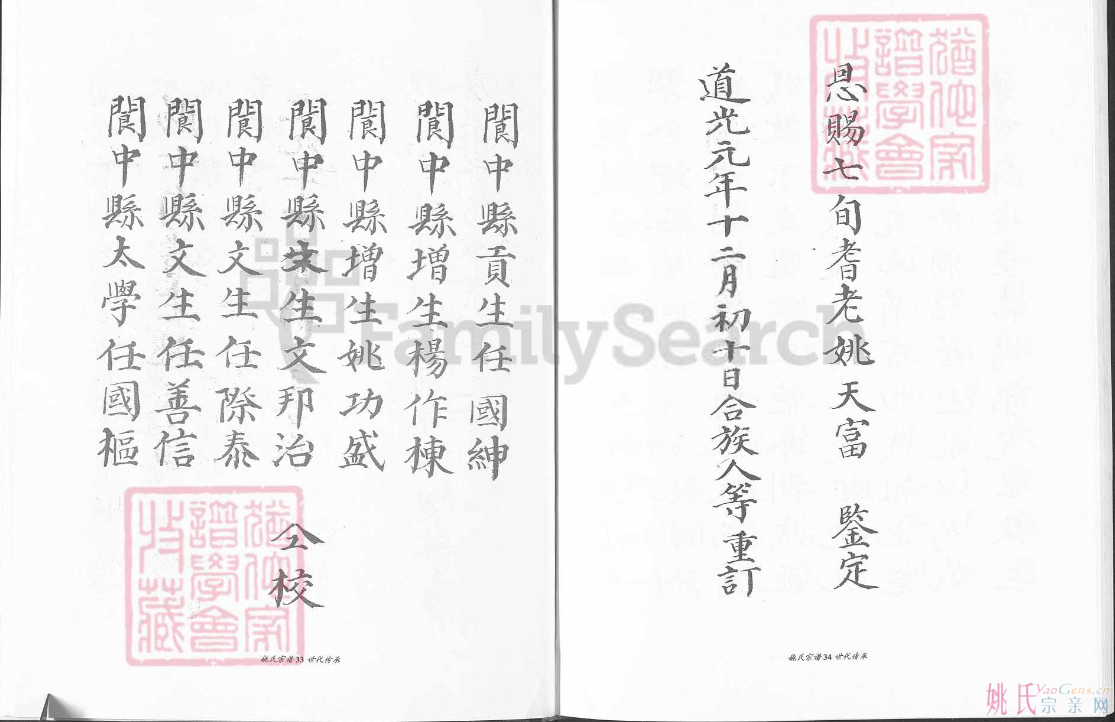 恩賜七旬耆老姚天富 鑒定
道光元年十二月初十日合族人等重訂
姚氏宗谱34 世代传承
閬中縣貢生任國紳
閬中縣增生楊作棟
閬中縣增生姚功盛
閬中縣生文邦治
閬中縣文生任際泰
閬中縣文生任善信
閬中縣太學任國樞
仝校
姚氏宗谱33 世代传承
FamilySearch
姚氏 YaoGens.cn
宗亲网